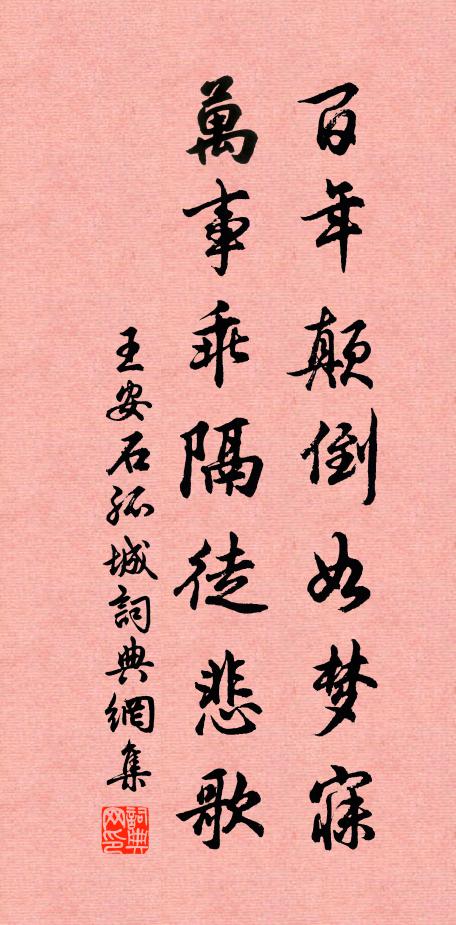 百年顛倒如梦寐
萬事乖隔徒悲歌
王安石孤城詞典網集
詞典网印